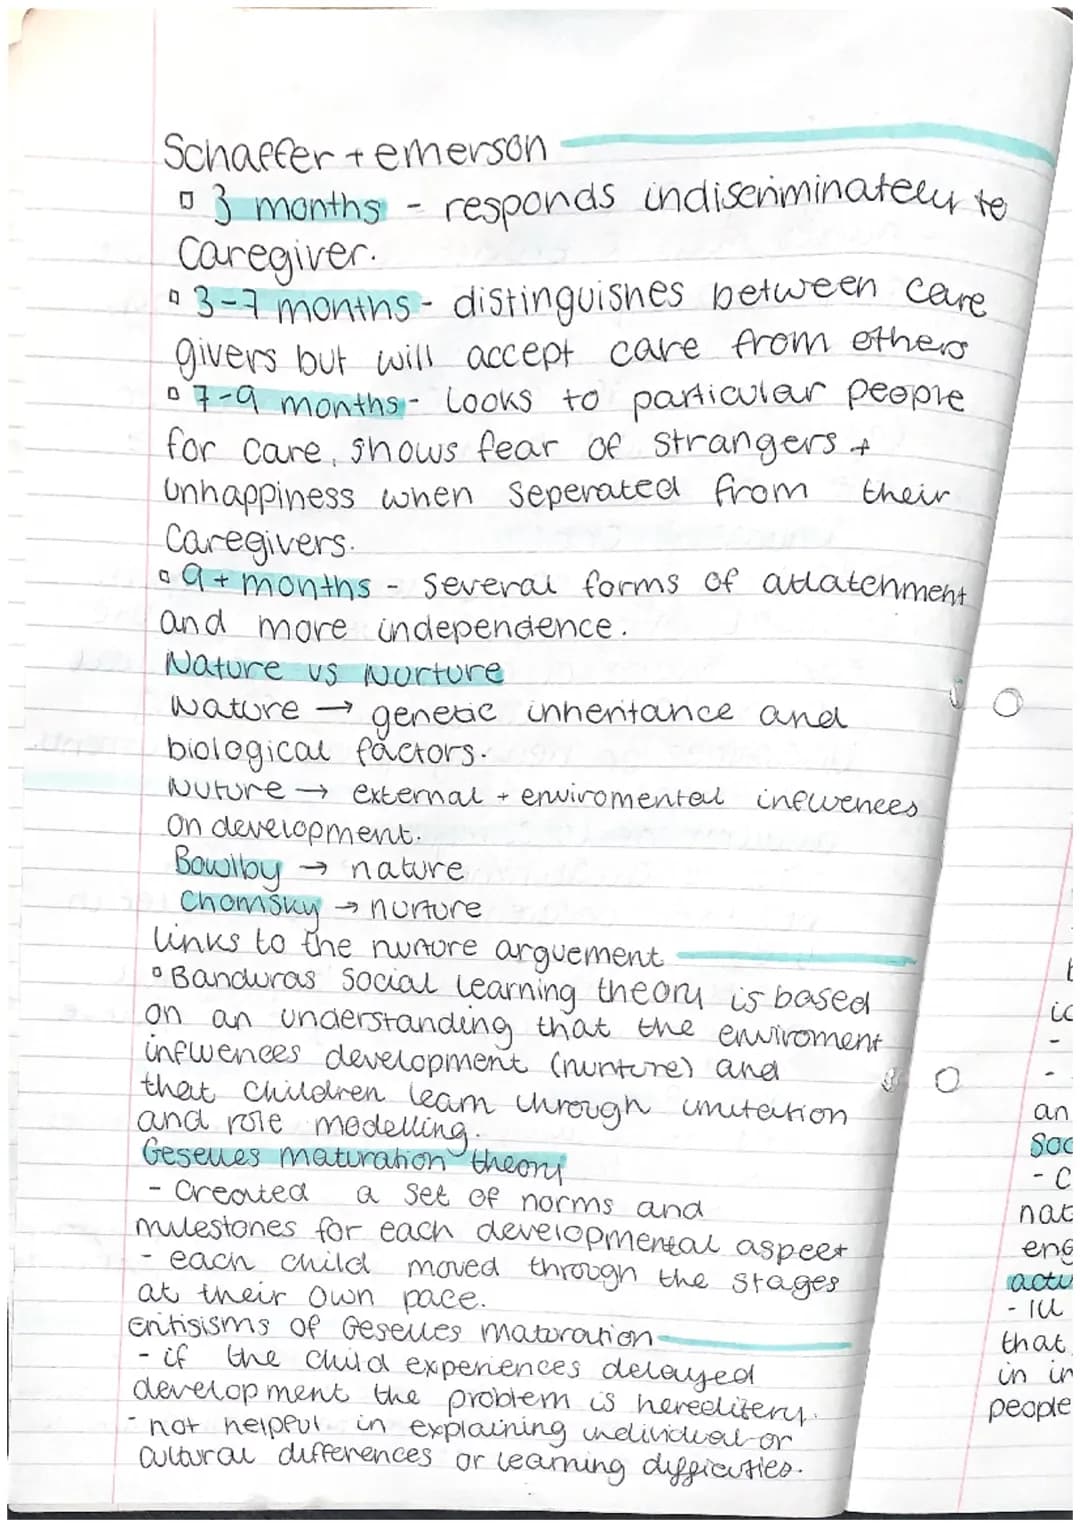 Schaffer + emerson
▫ 3 months - responds indiscriminately to
caregiver.
▫ 3-7 months - distinguishes between care
givers but will accept care from others
▫ 7-9 months - looks to particular people
for care, shows fear of strangers +
unhappiness when seperated from their
caregivers.
▫ 9+ months - several forms of attatchment
and more independence.
Nature vs Nurture
Nature → genetic inheritance and
biological factors.
Nuture → external + enviromental influences
on development.
Bowlby → nature
Chomsky → nurture
links to the nurture arguement
▫ Banduras social learning theory is based
on an understanding that the enviroment
influences development (nurture) and
that children learn through imitation
and role modelling.
Geselles maturation theory
- Created a set of norms and
milestones for each developmental aspect
- each child moved through the stages
at their own pace.
critisisms of Geselles maturation
- if the child experiences delayed
development the problem is hereditery.
- not helpful in explaining individual or
cultural differences or learning difficulties.
ic
-
-
an
soc
- C
nat
eng
actu
that
in in
people